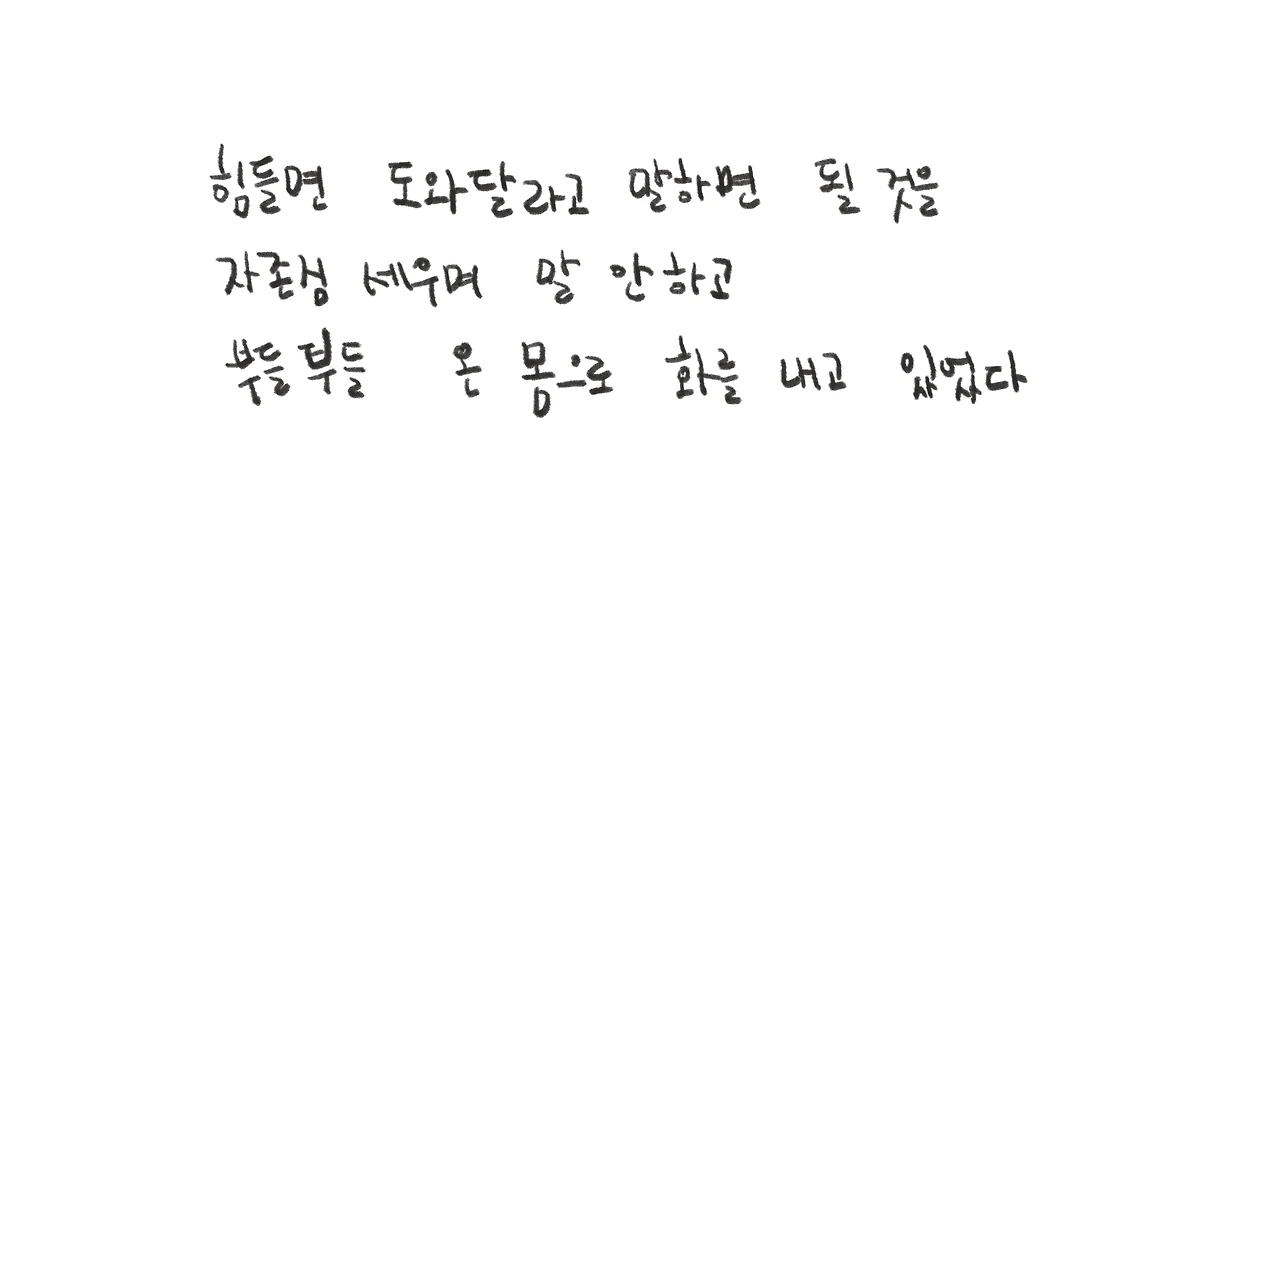 힘들면 도와달라고 말하면 될 것을
자존심 세우며 말 안하고
부들부들 온 몸으로 화를 내고 있었다